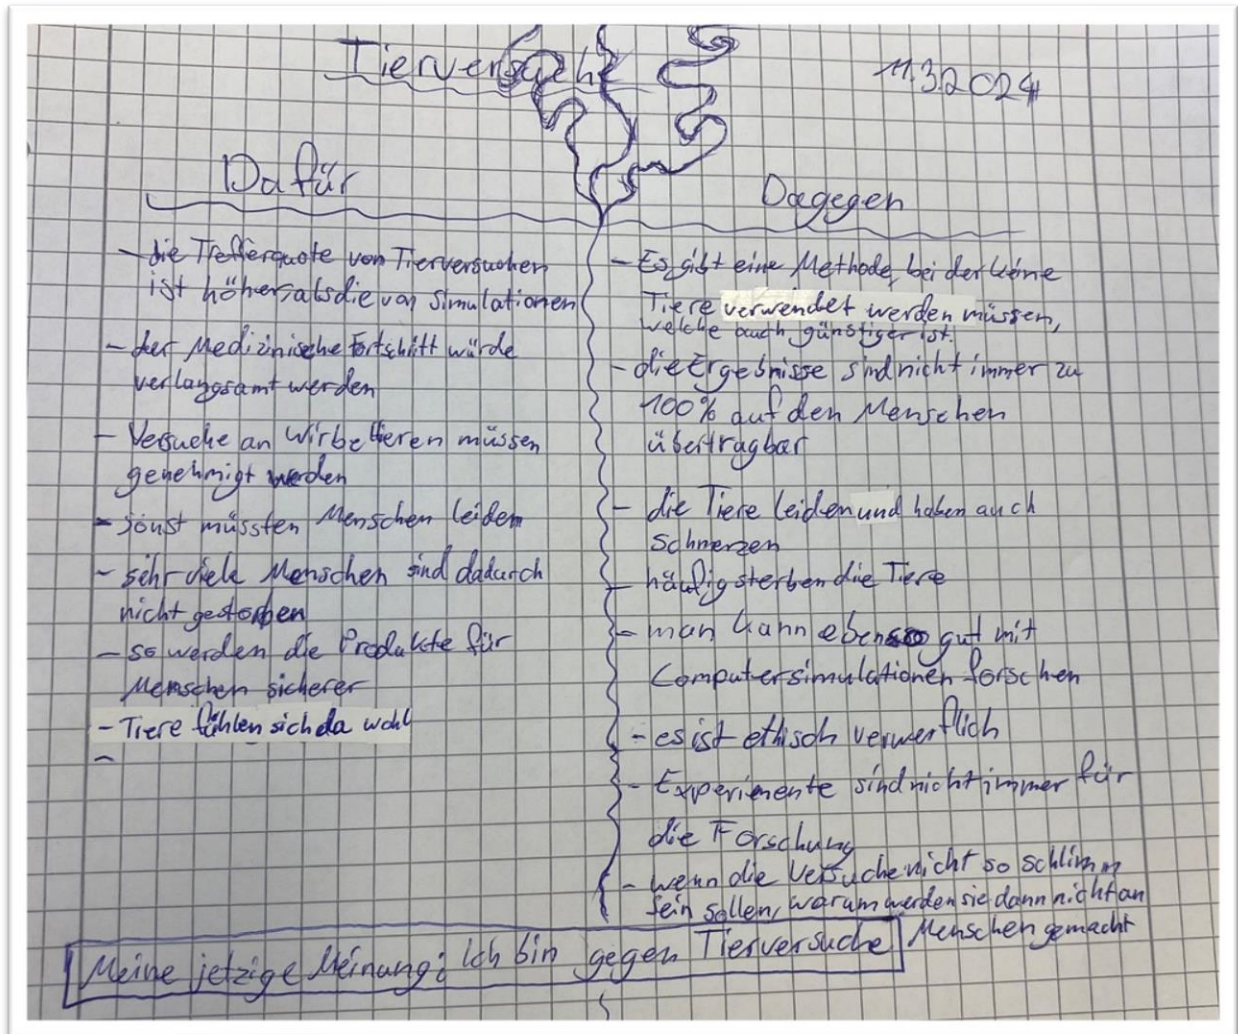 Tierversuche
11.3.2024
Dafür
- die Trefferquote von Tierversuchen
ist höher, als die von Simulationen
- der Medizinische Fortschitt würde
verlangsamt werden
- Versuche an Wirbeltieren müssen
genehmigt werden
- sonst müssten Menschen leiden
- sehr viele Menschen sind dadurch
nicht gestorben
- so werden die Produkte für
Menschen sicherer
- Tiere fühlen sich da wohl
-
Dagegen
- Es gibt eine Methode, bei der keine
Tiere verwendet werden müssen,
welche auch günstiger ist.
- die Ergebnisse sind nicht immer zu
100% auf den Menschen
übertragbar
- die Tiere leiden und haben auch
Schmerzen
- häufig sterben die Tiere
- man kann ebenso gut mit
Computersimulationen forschen
- es ist ethisch verwerflich
- Experimente sind nicht immer für
die Forschung
- wenn die Versuche nicht so schlimm
sein sollen, warum werden sie dann nicht an
Menschen gemacht
Meine jetzige Meinung: Ich bin gegen Tierversuche